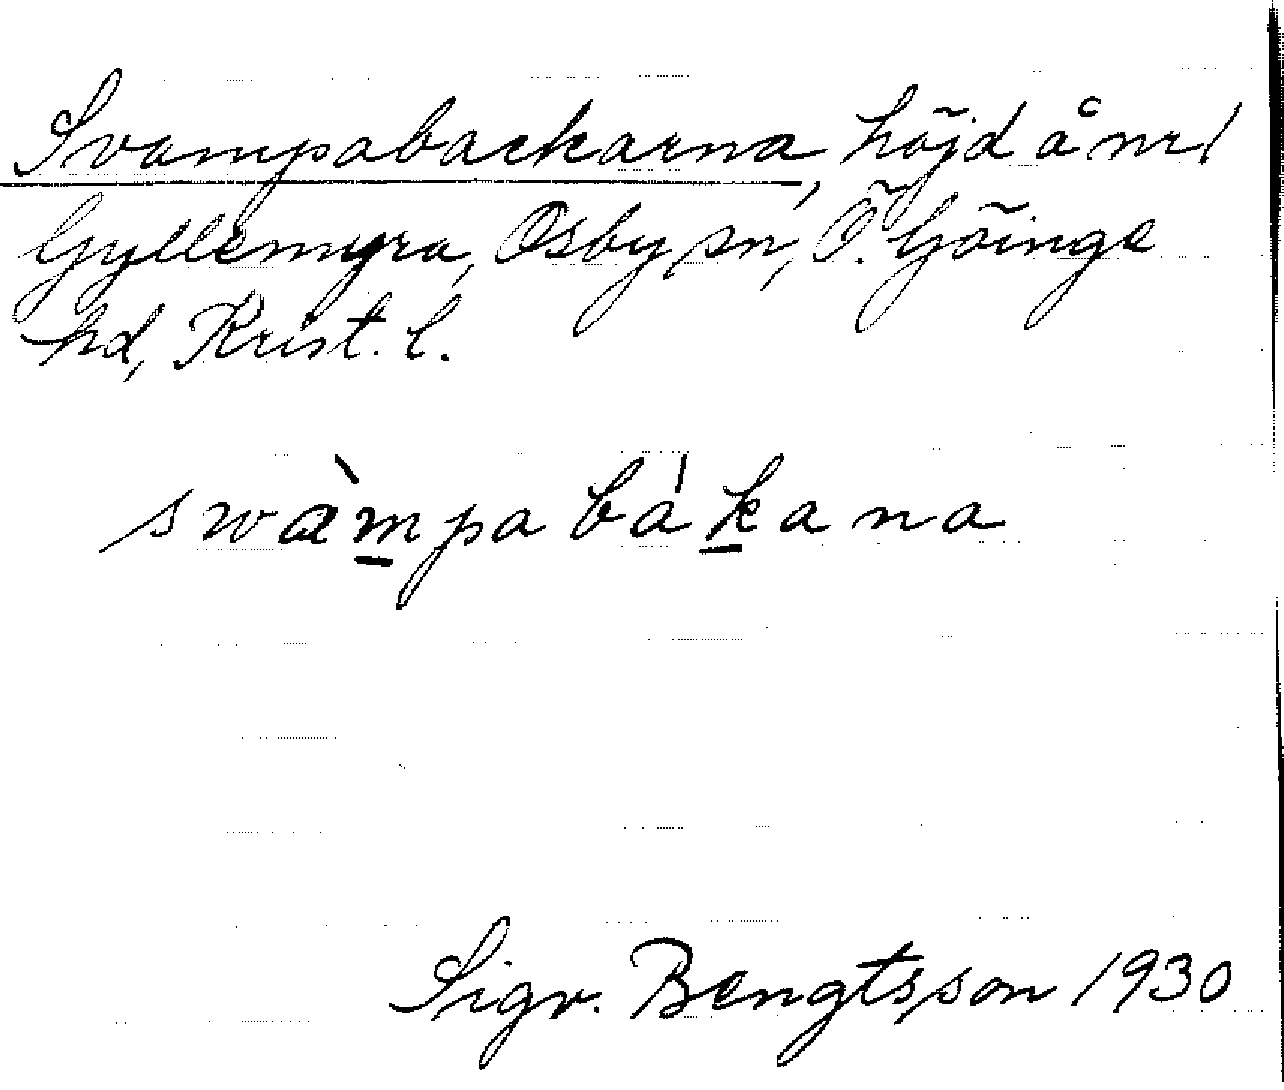 Svampabackarna, höjd å nr 1
Gyllemyra, Osby sn, Ö. Göinge
hd, Krist. l.
swàmpabákana
Sigv. Bengtsson 1930